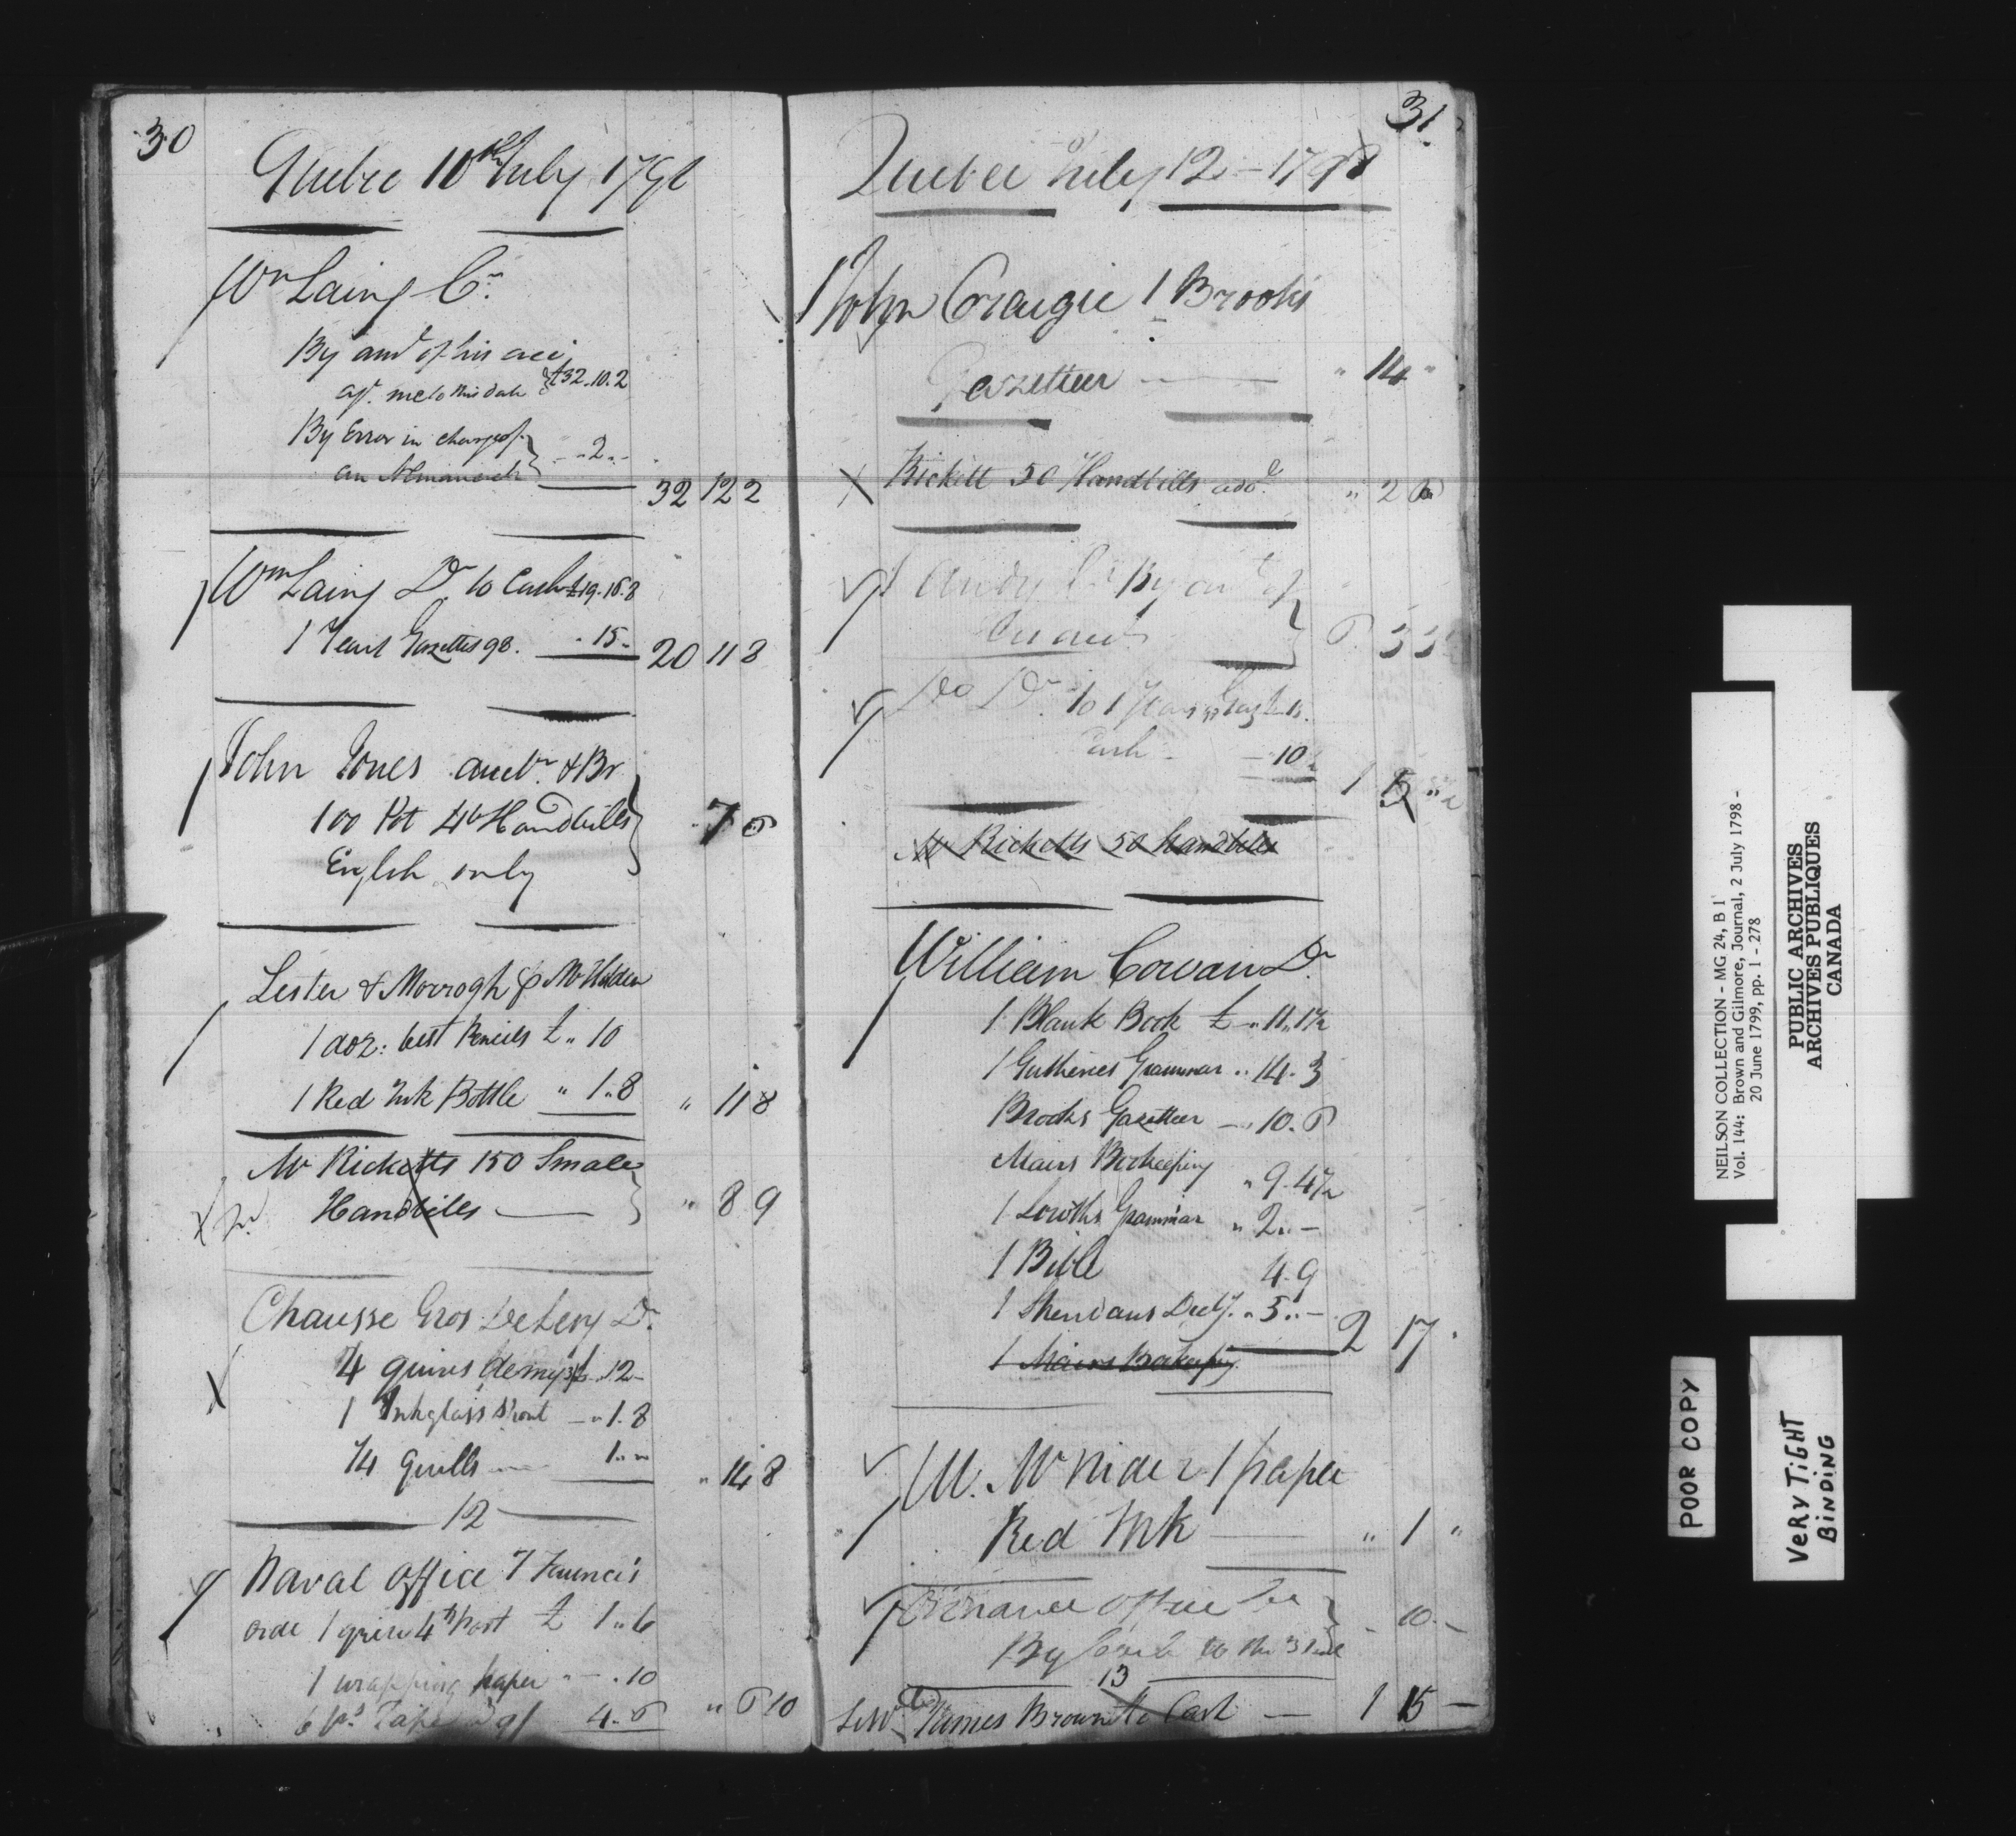 30
Quebec 10th July 1798
Wm Laing Cr.
By amt of his acct
agt. me to this date } £32.10.2
By Error in charge of
an Almanack } - .. 2 .. -
32 12 2
Wm Laing Dr to Cash £19.16.8
1 Years Gazettes 98. - 15 ..
20 11 8
John Jones auctr. & Br
100 Pot 4to Handbills
English only
.. 7 6
Lester & Morrogh p Mr Holden
1 doz: best Pencils £ .. 10
1 Red Ink Bottle .. 1 .. 8
.. 11 8
Mr Ricketts 150 Small
Handbills —
.. 8 9
Chausse Gros DeLery Dr.
4 quires demy 3/ £ .. 12 -
1 Inkglass - .. 1.8
1/4 quills 1 .. ..
.. 14 8
12
Naval Office 7
1 quire 4to Post £ 1 .. 6
1 wrapping paper .. - .10
6 ps Tape 9/ 4 .. 6
.. 6 10
31
Quebec July 12 - 1798
John Craigie 1 Brooks
Gazetteer — .. 14 ..
Rickett 50 Handbills .. 2 6
Cr By amt of
6 3 3
Do Dr. to 1 Years Gaz
Cash - 10
1 5
Mr Ricketts 50 handbills
William Cowan Dr
1 Blank Book £ - .. 11 .. 1½
1 Guthries Grammar .. 14.3
Brooks Gazetteer - .. 10.6
Mairs Bookeeping .. 9.4½
1 Lowths Grammar .. 2 .. -
1 Bible 4.9
1 Sheridans Dicty. .. 5 .. -
2 17 .
1 Mairs Bookeeping
M. McNider 1 paper
Red Ink — .. 1 ..
Ordnance Office
By to the
- 10 -
13
James Brown to Cash — 1 15 —
NEILSON COLLECTION - MG 24, B 1
Vol. 144: Brown and Gilmore, Journal, 2 July 1798 -
20 June 1799, pp. 1 - 278
PUBLIC ARCHIVES
ARCHIVES PUBLIQUES
CANADA
POOR COPY
VERY TIGHT
BINDING